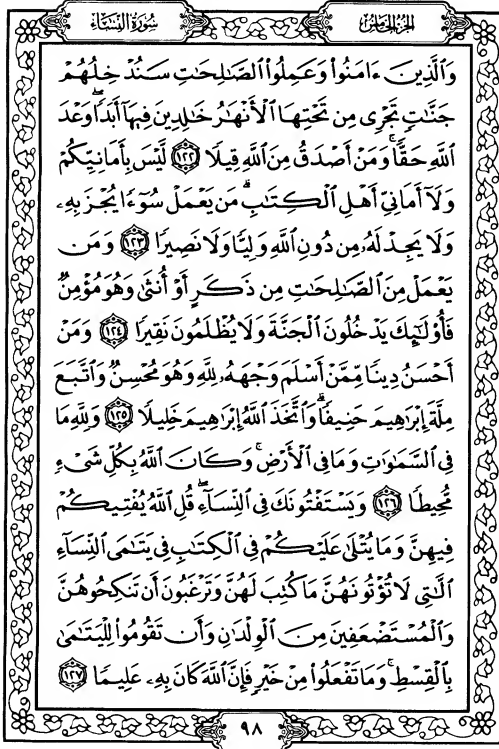 سُورَةُ النِّسَاءِ
الجُزْءُ الخَامِسُ
وَٱلَّذِينَ ءَامَنُوا۟ وَعَمِلُوا۟ ٱلصَّٰلِحَٰتِ سَنُدْخِلُهُمْ
جَنَّٰتٍ تَجْرِى مِن تَحْتِهَا ٱلْأَنْهَٰرُ خَٰلِدِينَ فِيهَآ أَبَدًا ۖ وَعْدَ
ٱللَّهِ حَقًّا ۚ وَمَنْ أَصْدَقُ مِنَ ٱللَّهِ قِيلًا ﴿١٢٢﴾ لَّيْسَ بِأَمَانِيِّكُمْ
وَلَآ أَمَانِىِّ أَهْلِ ٱلْكِتَٰبِ ۗ مَن يَعْمَلْ سُوٓءًا يُجْزَ بِهِۦ
وَلَا يَجِدْ لَهُۥ مِن دُونِ ٱللَّهِ وَلِيًّا وَلَا نَصِيرًا ﴿١٢٣﴾ وَمَن
يَعْمَلْ مِنَ ٱلصَّٰلِحَٰتِ مِن ذَكَرٍ أَوْ أُنثَىٰ وَهُوَ مُؤْمِنٌ
فَأُو۟لَٰٓئِكَ يَدْخُلُونَ ٱلْجَنَّةَ وَلَا يُظْلَمُونَ نَقِيرًا ﴿١٢٤﴾ وَمَنْ
أَحْسَنُ دِينًا مِّمَّنْ أَسْلَمَ وَجْهَهُۥ لِلَّهِ وَهُوَ مُحْسِنٌ وَٱتَّبَعَ
مِلَّةَ إِبْرَٰهِيمَ حَنِيفًا ۗ وَٱتَّخَذَ ٱللَّهُ إِبْرَٰهِيمَ خَلِيلًا ﴿١٢٥﴾ وَلِلَّهِ مَا
فِى ٱلسَّمَٰوَٰتِ وَمَا فِى ٱلْأَرْضِ ۚ وَكَانَ ٱللَّهُ بِكُلِّ شَىْءٍ
مُّحِيطًا ﴿١٢٦﴾ وَيَسْتَفْتُونَكَ فِى ٱلنِّسَآءِ ۖ قُلِ ٱللَّهُ يُفْتِيكُمْ
فِيهِنَّ وَمَا يُتْلَىٰ عَلَيْكُمْ فِى ٱلْكِتَٰبِ فِى يَتَٰمَى ٱلنِّسَآءِ
ٱلَّٰتِى لَا تُؤْتُونَهُنَّ مَا كُتِبَ لَهُنَّ وَتَرْغَبُونَ أَن تَنكِحُوهُنَّ
وَٱلْمُسْتَضْعَفِينَ مِنَ ٱلْوِلْدَٰنِ وَأَن تَقُومُوا۟ لِلْيَتَٰمَىٰ
بِٱلْقِسْطِ ۚ وَمَا تَفْعَلُوا۟ مِنْ خَيْرٍ فَإِنَّ ٱللَّهَ كَانَ بِهِۦ عَلِيمًا ﴿١٢٧﴾
٩٨